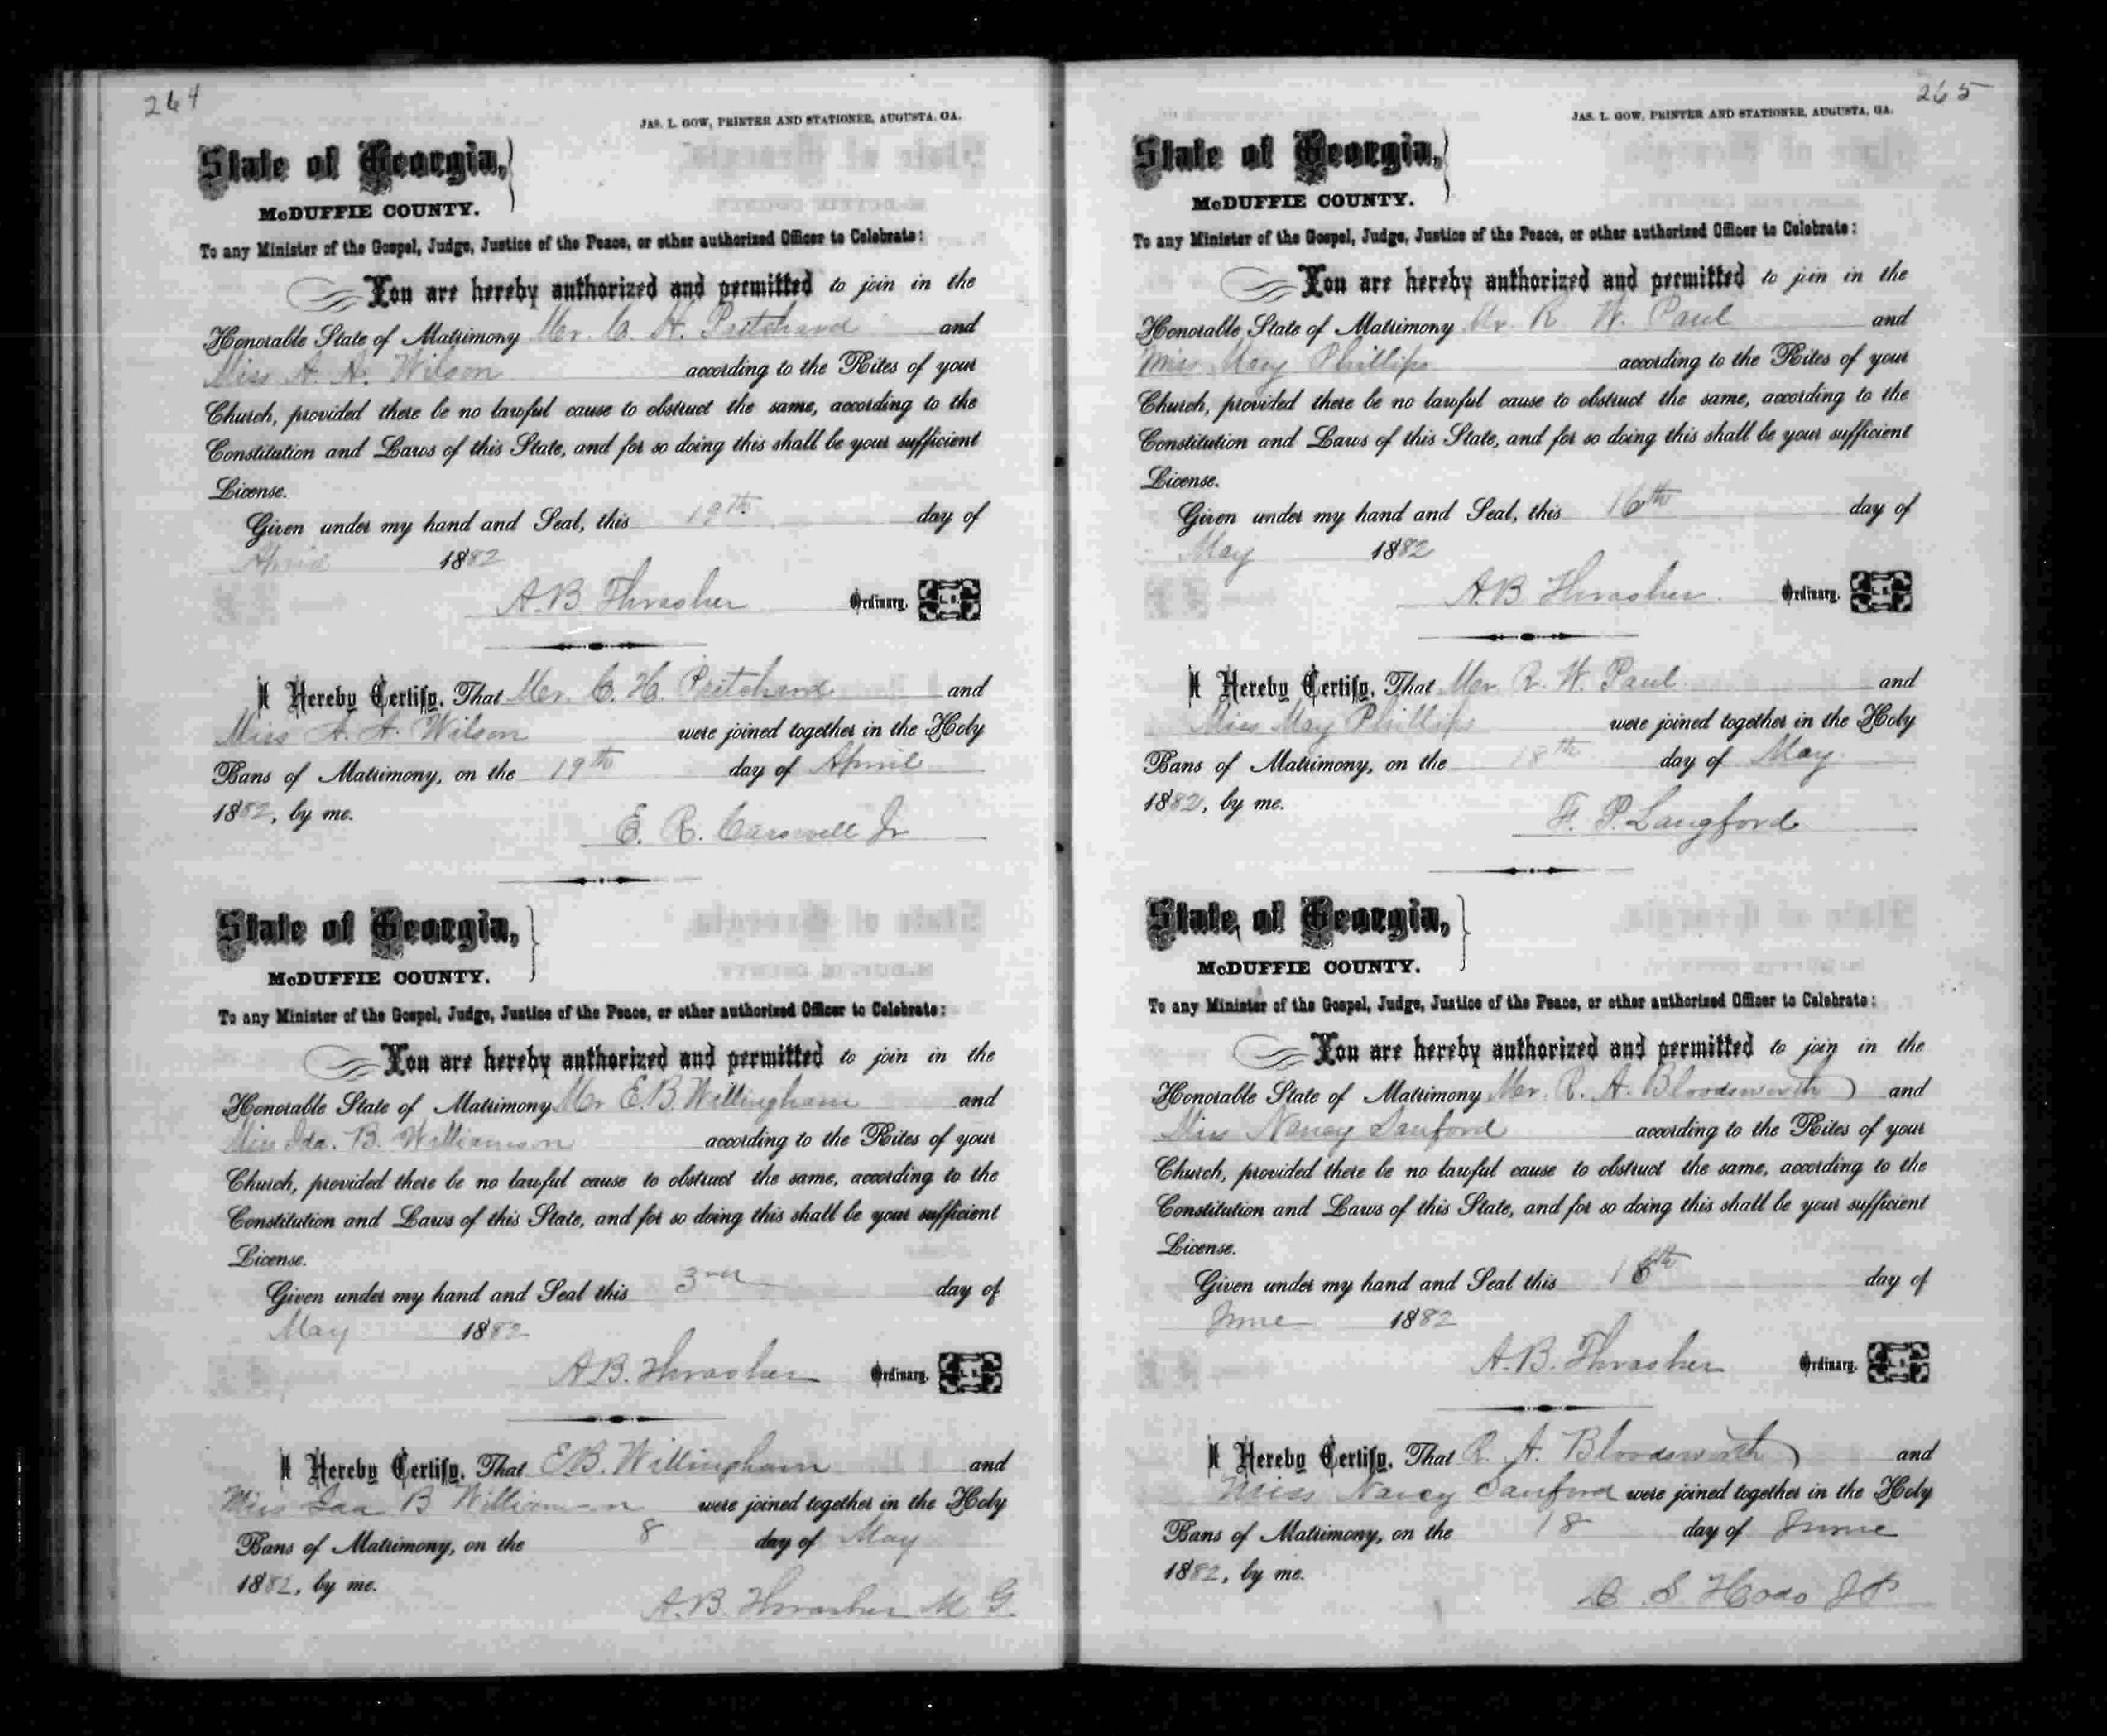 264
JAS. L. GOW, PRINTER AND STATIONER, AUGUSTA, GA.
State of Georgia,
McDUFFIE COUNTY.
To any Minister of the Gospel, Judge, Justice of the Peace, or other authorized Officer to Celebrate:
You are hereby authorized and permitted to join in the
Honorable State of Matrimony Mr. C. H. Pritchard and
Miss A. A. Wilson according to the Rites of your
Church, provided there be no lawful cause to obstruct the same, according to the
Constitution and Laws of this State, and for so doing this shall be your sufficient
License.
Given under my hand and Seal, this 19th day of
April 1882
A. B. Thrasher Ordinary. L. S.
I Hereby Certify, That Mr. C. H. Pritchard and
Miss A. A. Wilson were joined together in the Holy
Bans of Matrimony, on the 19th day of April
1882, by me.
E. R. Carswell Jr
State of Georgia,
McDUFFIE COUNTY.
To any Minister of the Gospel, Judge, Justice of the Peace, or other authorized Officer to Celebrate:
You are hereby authorized and permitted to join in the
Honorable State of Matrimony Mr E. B. Willingham and
Miss Ida. B. Williamson according to the Rites of your
Church, provided there be no lawful cause to obstruct the same, according to the
Constitution and Laws of this State, and for so doing this shall be your sufficient
License.
Given under my hand and Seal this 3rd day of
May 1882
A B. Thrasher Ordinary. L. S.
I Hereby Certify, That E. B. Willingham and
Miss Ida B Williamson were joined together in the Holy
Bans of Matrimony, on the 8 day of May
1882, by me.
A. B. Thrasher M. G.
265
JAS. L. GOW, PRINTER AND STATIONER, AUGUSTA, GA.
State of Georgia,
McDUFFIE COUNTY.
To any Minister of the Gospel, Judge, Justice of the Peace, or other authorized Officer to Celebrate:
You are hereby authorized and permitted to join in the
Honorable State of Matrimony Mr. R. W. Paul and
Miss May Phillips according to the Rites of your
Church, provided there be no lawful cause to obstruct the same, according to the
Constitution and Laws of this State, and for so doing this shall be your sufficient
License.
Given under my hand and Seal, this 16th day of
May 1882
A. B Thrasher. Ordinary. L. S.
I Hereby Certify, That Mr R. W. Paul and
Miss May Phillips were joined together in the Holy
Bans of Matrimony, on the 18th day of May
1882, by me.
F. P. Langford
State of Georgia,
McDUFFIE COUNTY.
To any Minister of the Gospel, Judge, Justice of the Peace, or other authorized Officer to Celebrate:
You are hereby authorized and permitted to join in the
Honorable State of Matrimony Mr. R. A. Bloodsworth and
Miss Nancy Sanford according to the Rites of your
Church, provided there be no lawful cause to obstruct the same, according to the
Constitution and Laws of this State, and for so doing this shall be your sufficient
License.
Given under my hand and Seal this 16th day of
June 1882
A. B. Thrasher Ordinary. L. S.
I Hereby Certify, That R. A. Bloodsworth and
Miss Nancy Sanford were joined together in the Holy
Bans of Matrimony, on the 18 day of June
1882, by me.
S Hodo J P